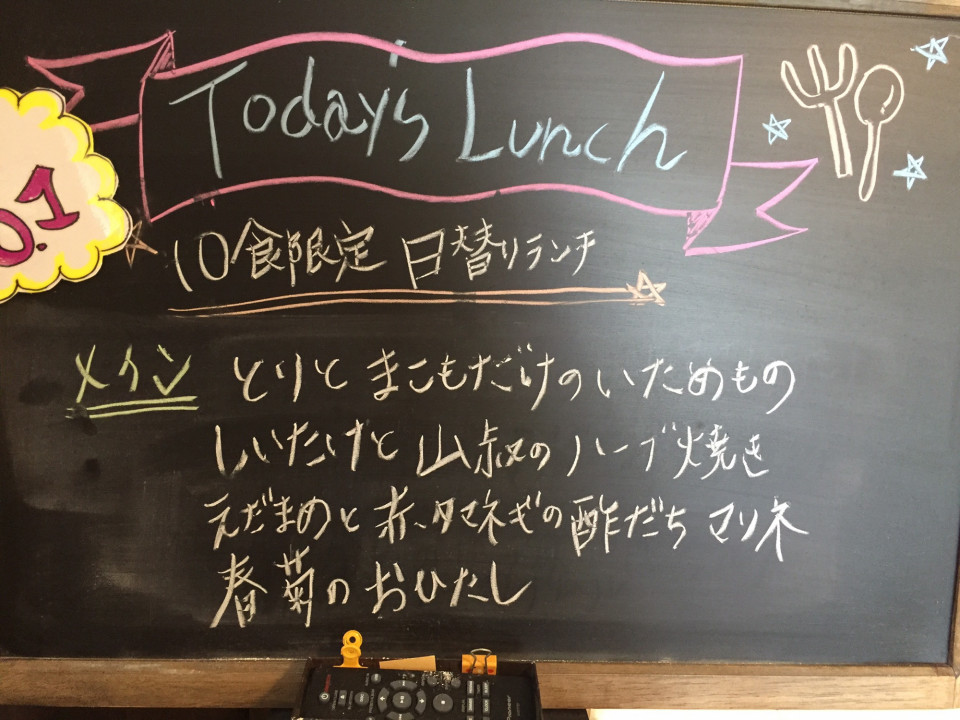 Today's Lunch
0.1
10食限定 日替りランチ
メイン とりと まこもだけのいためもの
しいたけと 山叔のハーブ焼き
えだまめと赤タマネギの酢だち マリネ
春菊のおひたし